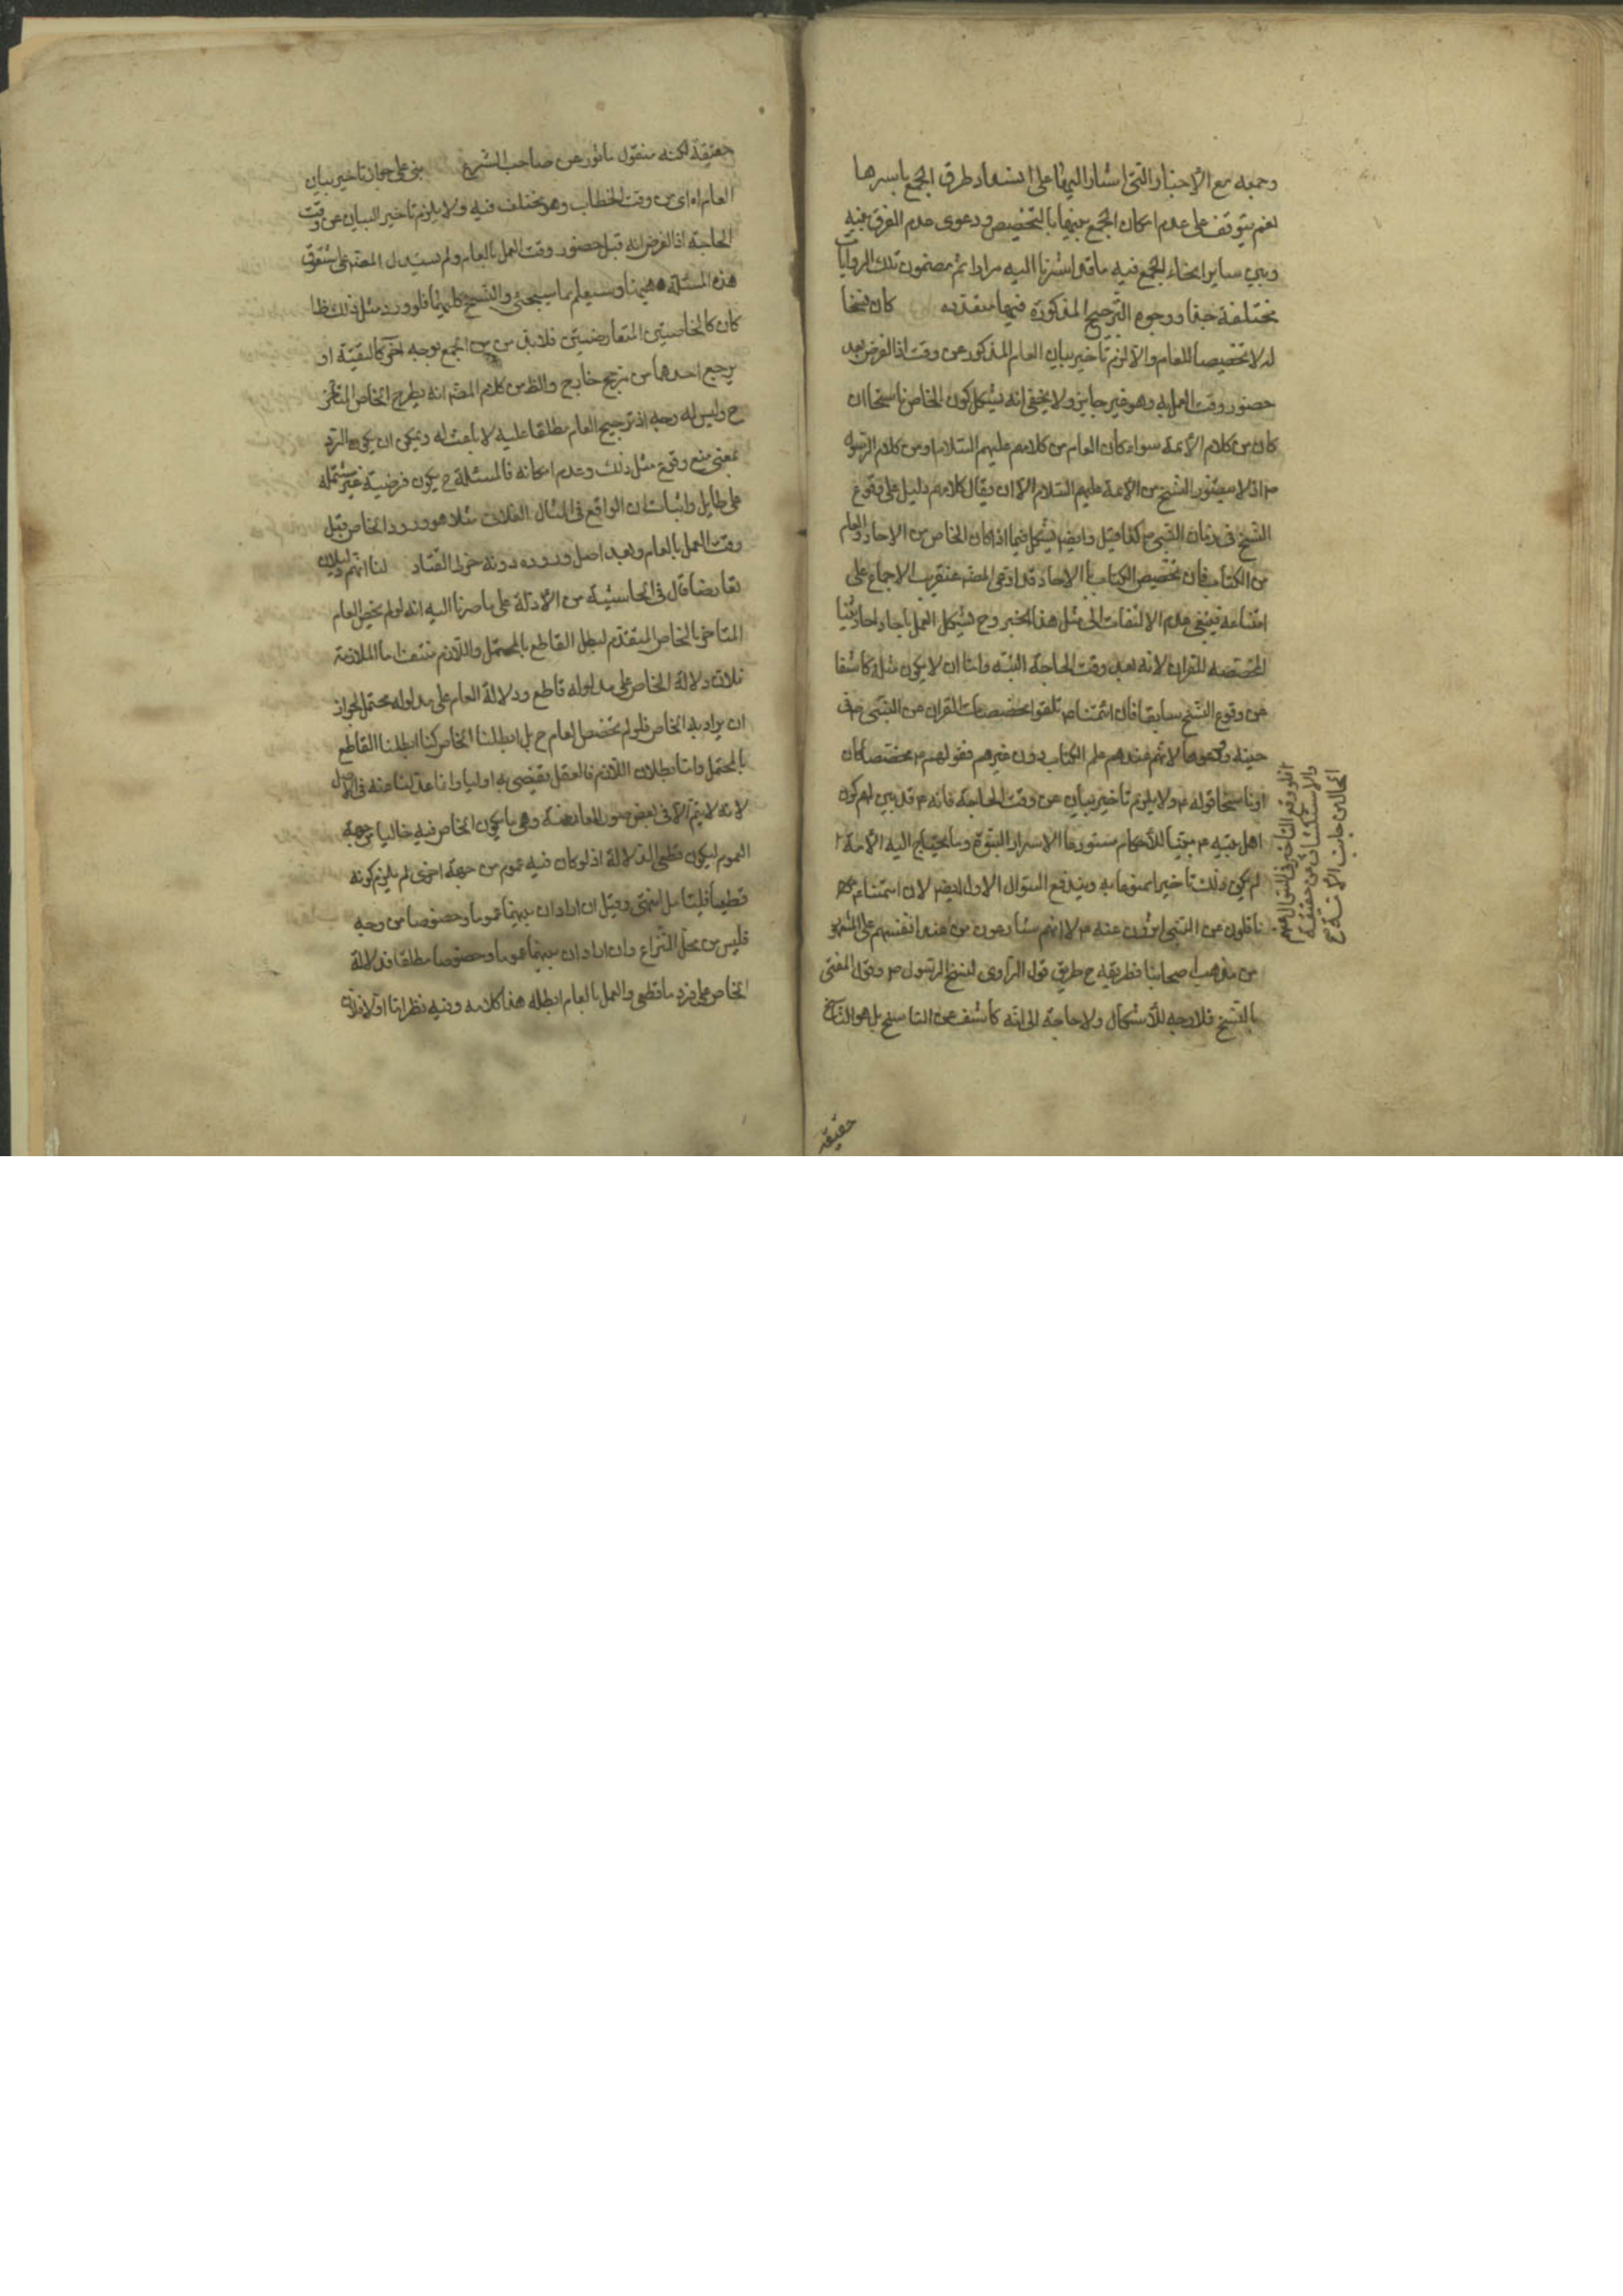 وجمعه مع الأخبار التى اشار اليها على انسداد طرق الجمع باسرها
نعم يتوقف على عدم امكان الجمع بينهما بالتخصيص ودعوى عدم الفرق بينه
وبين ساير انحاء الجمع فيه ما قد اشرنا اليه مرارا ثم مضمون تلك الروايات
مختلفة جدا ووجوه الترجيح المذكورة فيها متعددة كان نسخا
له لا تخصيصا للعام والا لزم تأخير بيان العام المذكور عن وقت اذا الفرض بعد
حضور وقت العمل به وهو غير جايز ولا يخفى انه يشكل كون الخاص ناسخا ان
كان من كلام الأئمة سواء كان العام من كلامهم عليهم السلام او من كلام الرسول
ص اذ لا يتصور النسخ من الأئمة عليهم السلام الا ان يقال كلامهم دليل على وقوع
النسخ فى زمان النبى ص كذا قيل وايضا يشكل فيما اذا كان الخاص من الاحاد والعام
من الكتاب فان تخصيص الكتاب بالاحاد قد ادعى المصنف عنقريب الاجماع على
امتناعه فينبغى عدم الالتفات الى مثل هذا الخبر وح يشكل العمل باحاد احاديثنا
المخصصه للقران لانه بعد وقت الحاجة البتة واما ان لا يكون مثله كاشفا
عن وقوع النسخ سابقا فان ائمتنا ع تلقوا مخصصات القران عن النبى ص فى
حينه وهم عندهم علم الكتاب دون غيرهم فقولهم ع مخصصا كان
او ناسخا قوله ص ولا يلزم تأخير بيان عن وقت الحاجة فانه ص قد بين لهم كون
اهل بيته ع مبينا للأحكام مستودعا لاسرار النبوة وما يحتاج اليه الأمة
لم يكن ذلك تأخيرا ممنوعا به ويندفع السؤال الاول ايضا لان ائمتنا ع
ناقلون عن النبى ص لا انهم شارعون من عند انفسهم على المشهور
من مذهب اصحابنا فطريقه ح طريق قول الراوى نسخ الرسول ص وقول المفتى
بالنسخ فلا وجه للأشكال ولا حاجة الى انه كاشف عن الناسخ بل هو الناسخ
فلو وقع التأخير فى السؤال عنهم
والاستكشاف عن حقيقة
الحال من جانب الأمة
حقيقة
حقيقة لكنه منقول مأثور عن صاحب الشرع بنى على جواز تأخير بيان
العام اه اى عن وقت الخطاب وهو مختلف فيه ولا يلزم تأخير البيان عن وقت
الحاجة اذ الفرض انه قبل حضور وقت العمل بالعام ولم يستدل المصنف على شقوق
هذه المسئلة ههنا وسيعلم مما سيجئ والنسخ كليهما فلو ورد مثل ذلك ظنا
كان كالخاصين المتعارضين فلا بد من الجمع بوجه اخر كالتقية او
يرجح احدهما من مرجح خارج والظ من كلام المصنف انه يطرح الخاص المتأخر
ح وليس له وجه اذ ترجيح العام مطلقا عليه لا باعث له ويمكن ان يكون الرد
بمعنى منع وقوع مثل ذلك وعدم امكانه فالمسئلة ح يكون فرضية غير مشتملة
على طايل واثبات ان الواقع فى المثال الفلانى مثلا هو ورود الخاص قبل
وقت العمل بالعام وبعد اصل وروده دونه خرط القتاد لنا انهم دليلان
تعارضا قال فى الحاشية من الأدلة على ما صرنا اليه انه لو لم يخص العام
المتاخر بالخاص المتقدم لبطل القاطع بالمحتمل واللازم منتف اما الملازمة
فلان دلالة الخاص على مدلوله قاطع ودلالة العام على مدلوله محتمل لجواز
ان يراد به الخاص فلو لم نخصص العام ح بل ابطلنا الخاص كنا ابطلنا القاطع
بالمحتمل واما بطلان اللازم فالعقل يقضى به اوليا وانما عدلنا عنه فى الاصل
لانه لا يتم الا فى بعض صور المعارضة وهى ما يكون الخاص فيه خاليا من جهة
العموم ليكون قطعى الدلالة اذ لو كان فيه عموم من جهة اخرى لم يلزم كونه
قطعيا فليتأمل انتهى وقيل ان اراد ان بينهما عموما وخصوصا من وجه
فليس من محل النزاع وان اراد ان بينهما عموما وخصوصا مطلقا فدلالة
الخاص على فرد ما قطعى والعمل بالعام ابطله هذا كلامه وفيه نظر اما اولا فلان